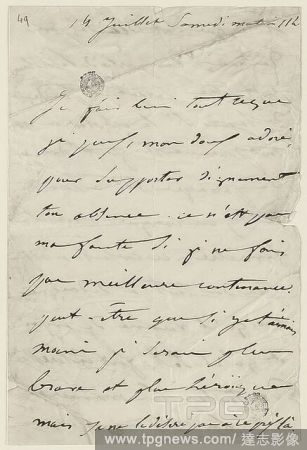 49
14 Juillet Samedi matin 11 h
Je fais bien tout ce que
je puis, mon doux adoré,
pour supporter dignement
ton absence. ce n'est pas
ma faute si je ne fais
pas meilleure contenance.
peut-être que si je t'aimais
moins je serais plus
brave et plus héroïque
mais je ne le désire pas à ce prix là
TPG
www.tpgnews.com / 達志影像